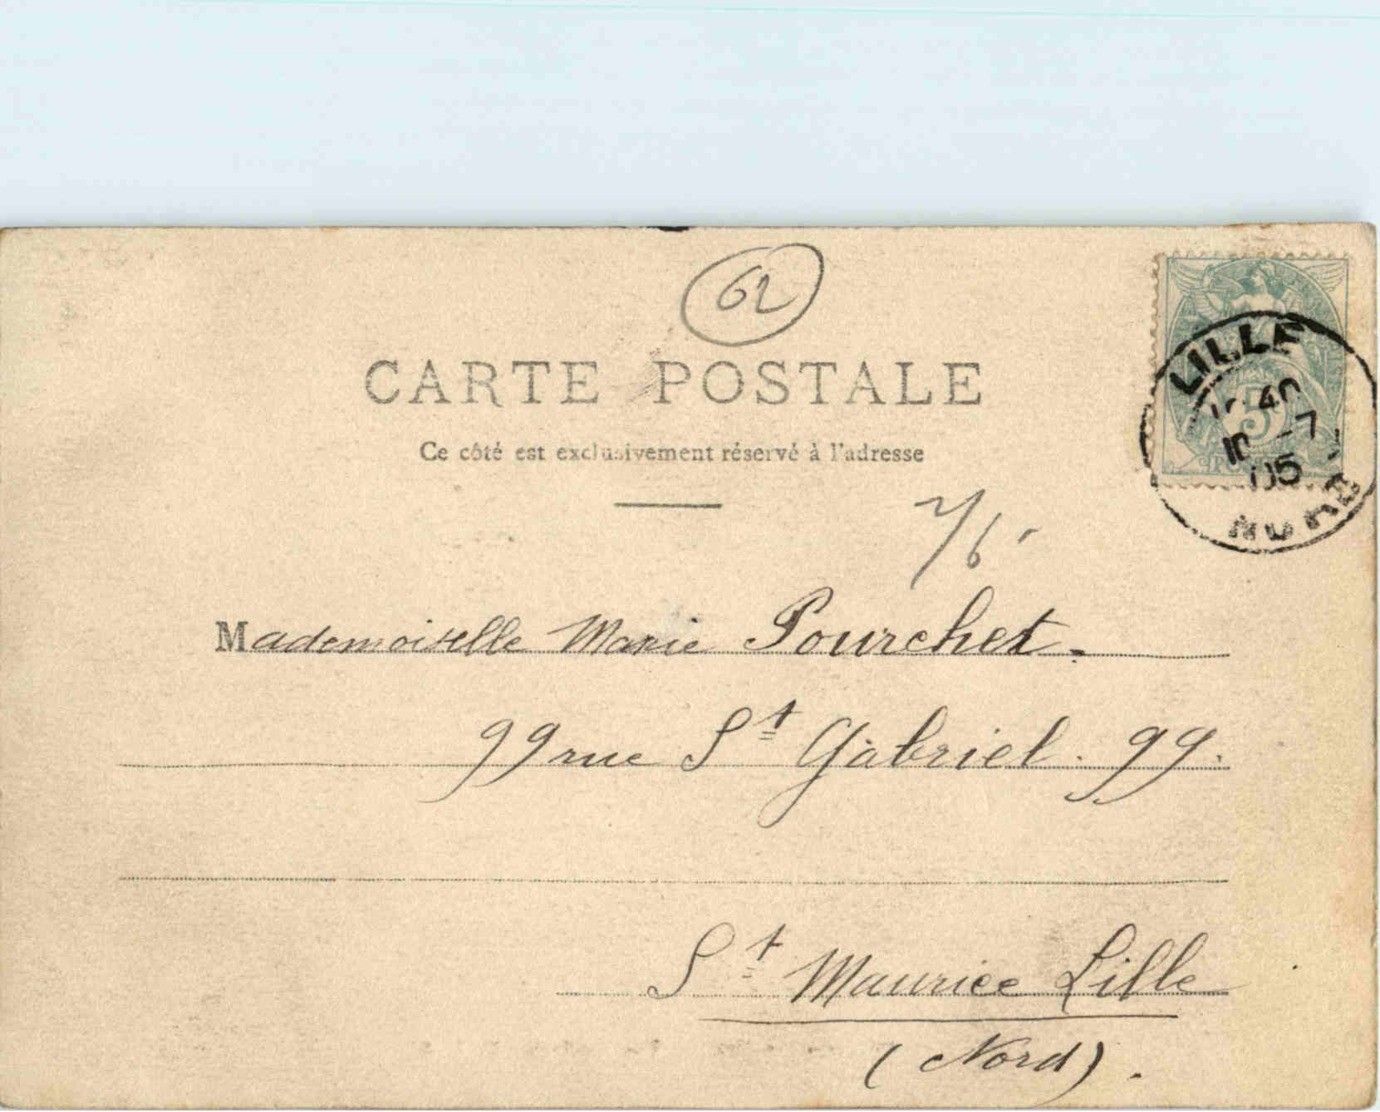 62
CARTE POSTALE
Ce côté est exclusivement réservé à l'adresse
LILLE
10-7
05
NORD
5
Mademoiselle Marie Pourchet.
99 rue St Gabriel. 99.
St Maurice Lille
(Nord).